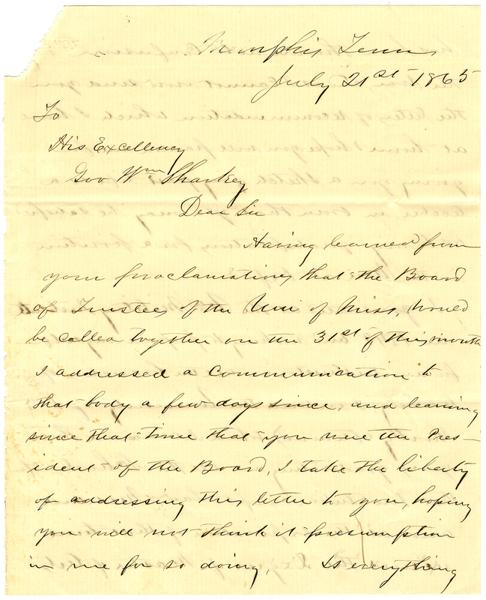 Memphis Tenn
July 21st 1865
To
His Excellency
Gov Wm Sharkey
Dear Sir
Having learned from
your proclamation that the Board
of Trustees of the Uni of Miss, would
be called together on the 31st of this month
I addressed a communication to
that body a few days since, and learning
since that time that you were the Pres-
ident of the Board, I take the liberty
of addressing this letter to you, hoping
you will not think it presumption
in me for so doing, As everything